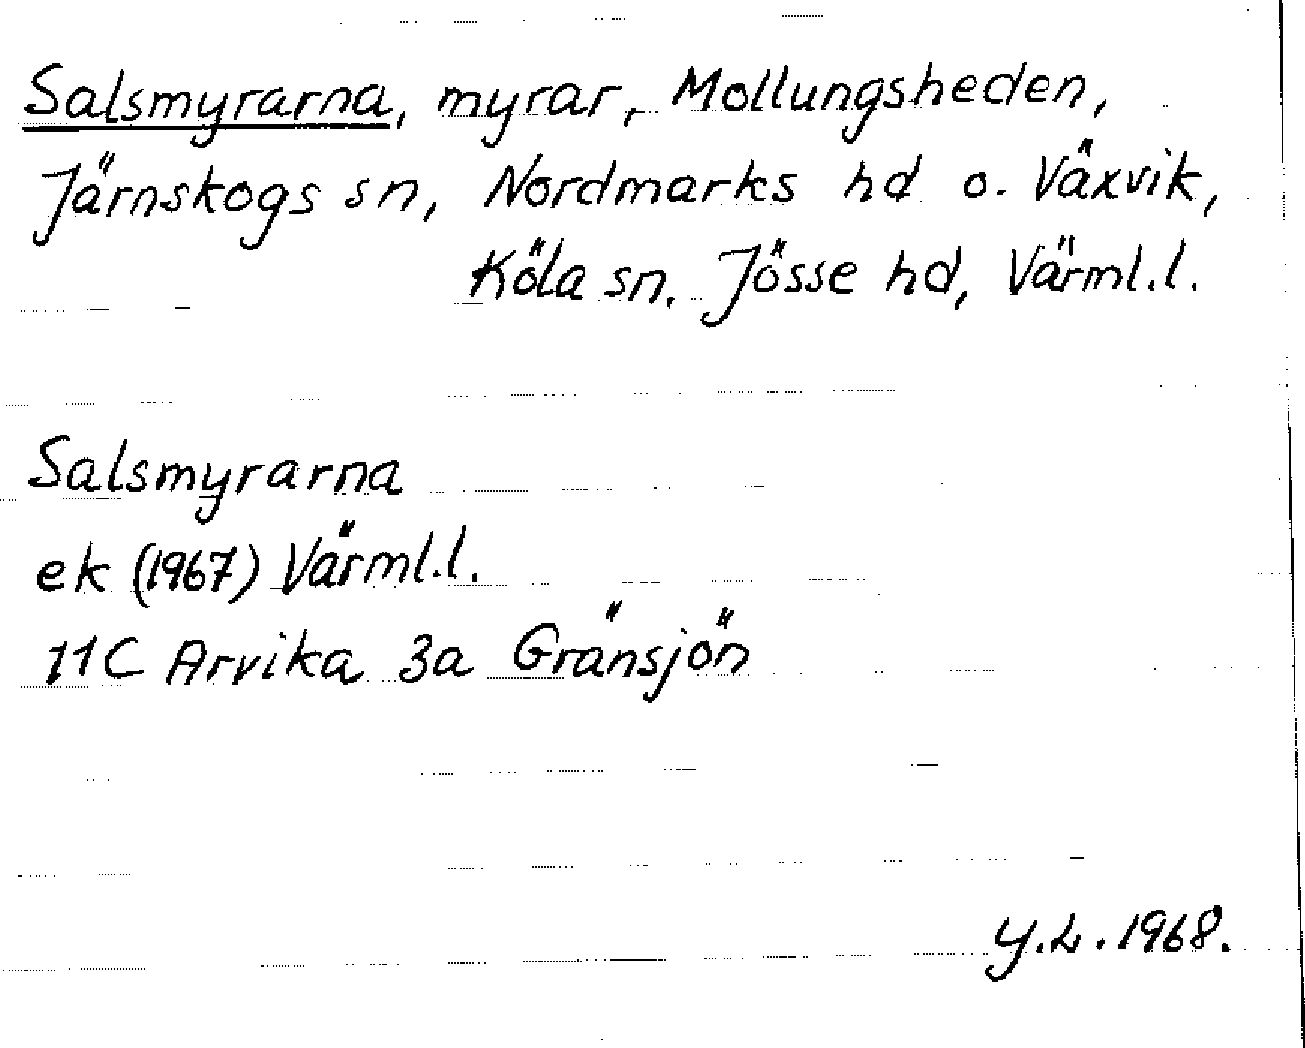 Salsmyrarna, myrar, Mollungsheden,
Järnskogs sn, Nordmarks hd o. Växvik,
Köla sn. Jösse hd, Värml.l.
Salsmyrarna
ek (1967) Värml.l.
11C Arvika 3a Gränsjön
Y.L. 1968.